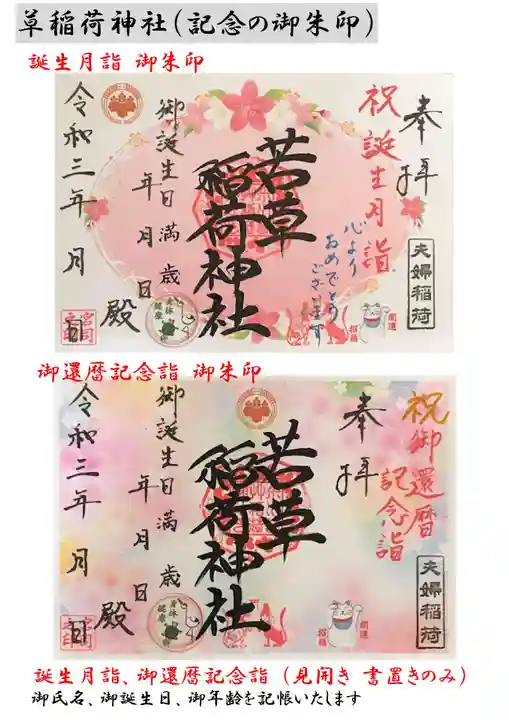 草稲荷神社(記念の御朱印)
誕生月詣 御朱印
奉拝
祝誕生月詣
心より
おめでとう
ございます
夫婦稲荷
開運
招福
若草
稲荷神社
御誕生日満 歳
年 月 日
殿
身体健康
令和三年 月 日
御還暦記念詣 御朱印
祝御還暦
記念詣
奉拝
夫婦稲荷
開運
招福
若草
稲荷神社
御誕生日満 歳
年 月 日
殿
身体健康
令和三年 月 日
誕生月詣、御還暦記念詣(見開き 書置きのみ)
御氏名、御誕生日、御年齢を記帳いたします